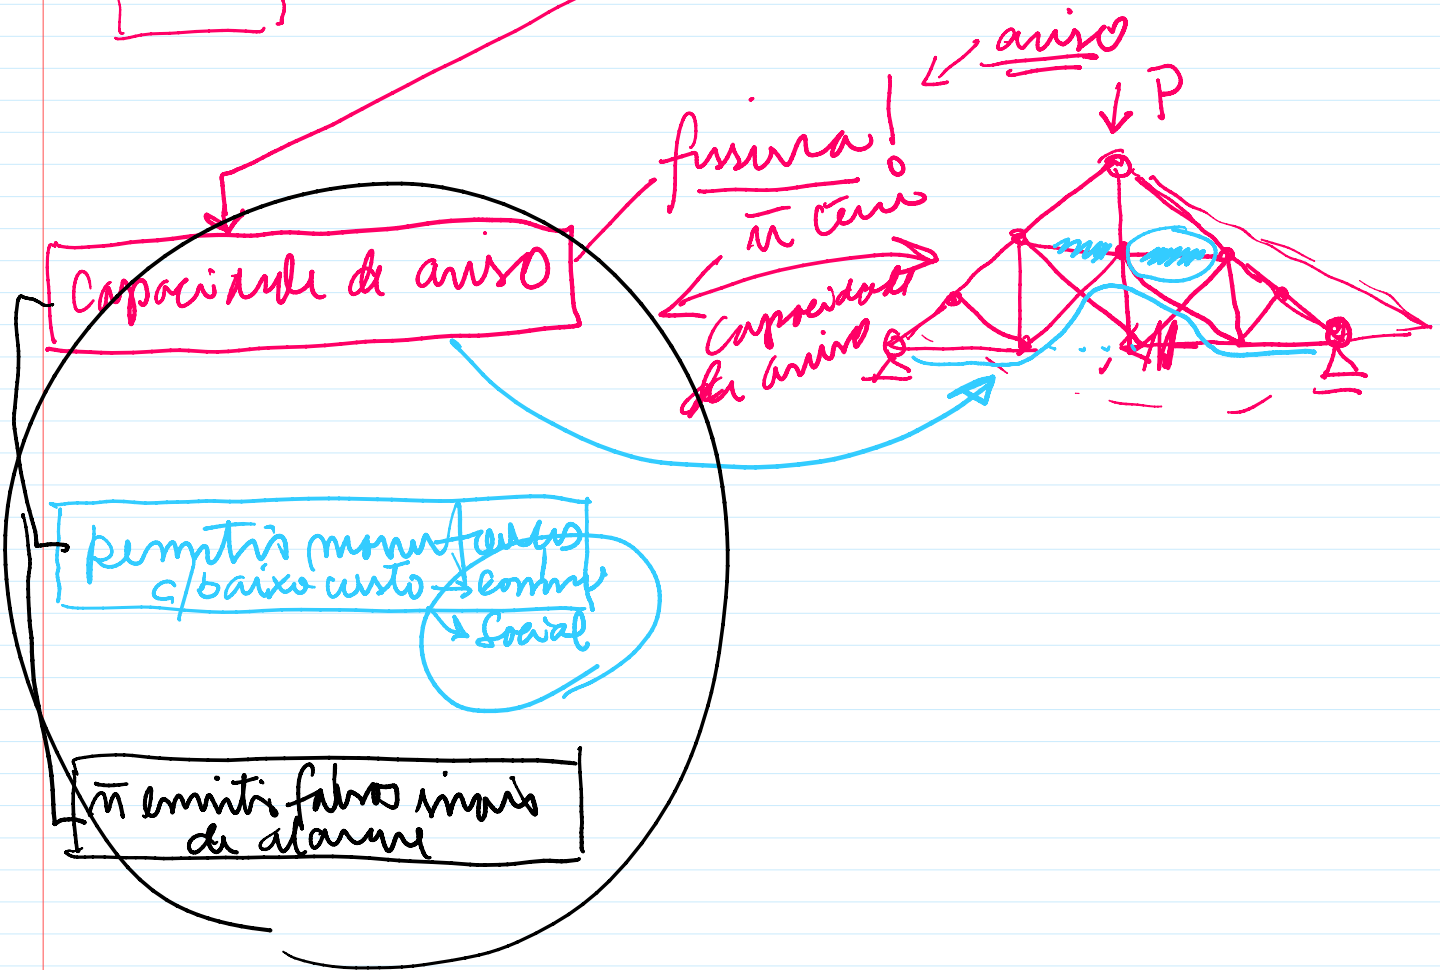 aviso
P
fissura!
n̄
Capacidade de aviso
capacidade
de aviso
permitir manutenções
c/ baixo custo → econômico
→ social
n̄ emitir falsos sinais
de alarme